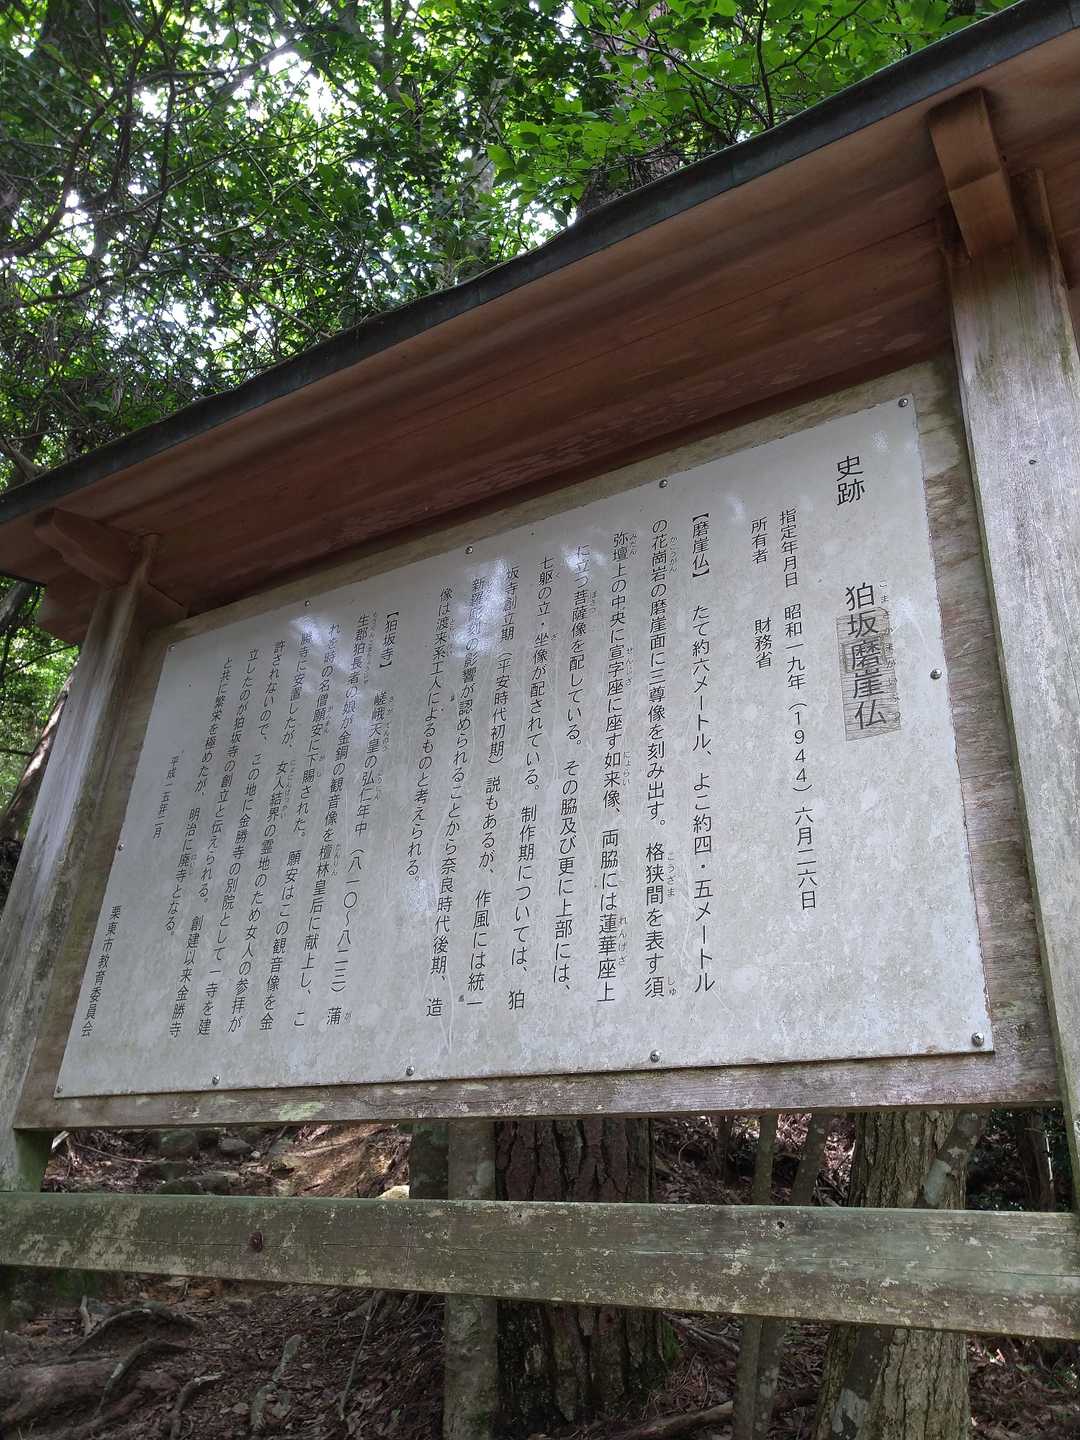 史跡 狛坂磨崖仏
指定年月日 昭和一九年(1944)六月二六日
所有者 財務省
【磨崖仏】 たて約六メートル、よこ約四・五メートル
の花崗岩の磨崖面に三尊像を刻み出す。格狭間を表す須
弥壇上の中央に宣字座に座す如来像、両脇には蓮華座上
に立つ菩薩像を配している。その脇及び更に上部には、
七躯の立・坐像が配されている。制作期については、狛
坂寺創立期(平安時代初期)説もあるが、作風には統一
新羅彫刻の影響が認められることから奈良時代後期、造
像は渡来系工人によるものと考えられる。
【狛坂寺】 嵯峨天皇の弘仁年中(八一〇〜八二三)蒲
生郡狛長者の娘が金銅の観音像を檀林皇后に献上し、こ
れを時の名僧願安に下賜された。願安はこの観音像を金
勝寺に安置したが、女人結界の霊地のため女人の参拝が
許されないので、この地に金勝寺の別院として一寺を建
立したのが狛坂寺の創立と伝えられる。創建以来金勝寺
と共に繁栄を極めたが、明治に廃寺となる。
平成一五年二月
栗東市教育委員会